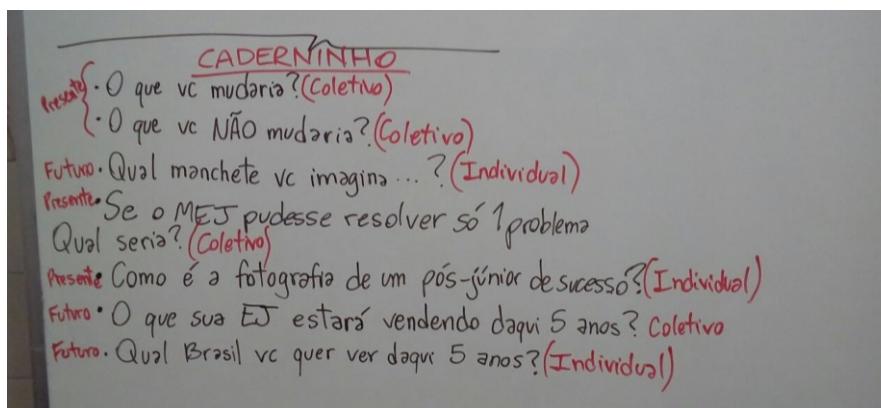 CADERNINHO
Presente { · O que vc mudaria? (Coletivo)
· O que vc NÃO mudaria? (Coletivo)
Futuro · Qual manchete vc imagina ... ? (Individual)
Presente · Se o MEJ pudesse resolver só 1 problema
Qual seria? (Coletivo)
Presente · Como é a fotografia de um pós-júnior de sucesso? (Individual)
Futuro · O que sua EJ estará vendendo daqui 5 anos? Coletivo
Futuro · Qual Brasil vc quer ver daqui 5 anos? (Individual)